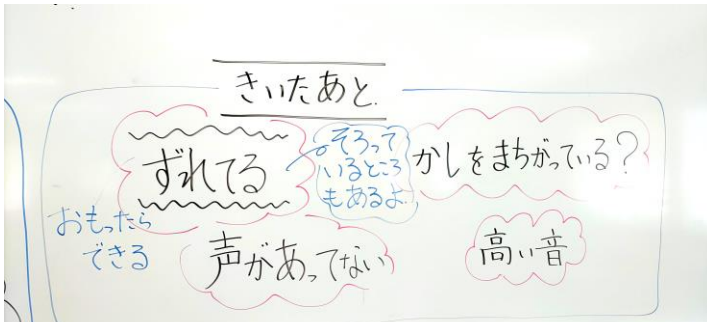 きいたあと
ずれてる
そろって
いるところ
もあるよ
かしをまちがっている?
おもったら
できる
声があってない
高い音